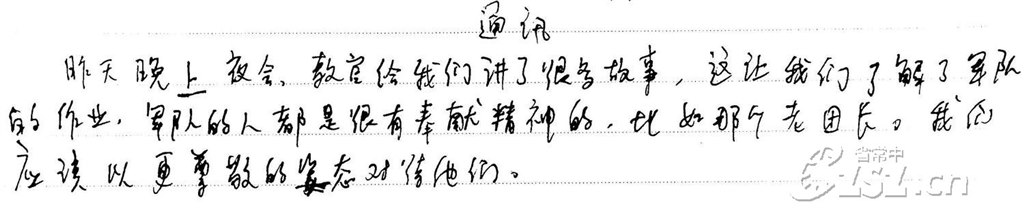 通讯
昨天晚上夜会,教官给我们讲了很多故事,这让我们了解了军队
的作业,军队的人都是很有奉献精神的,比如那个老团长。我们
应该以更尊敬的姿态对待他们。
省常中
CZSZ.cn